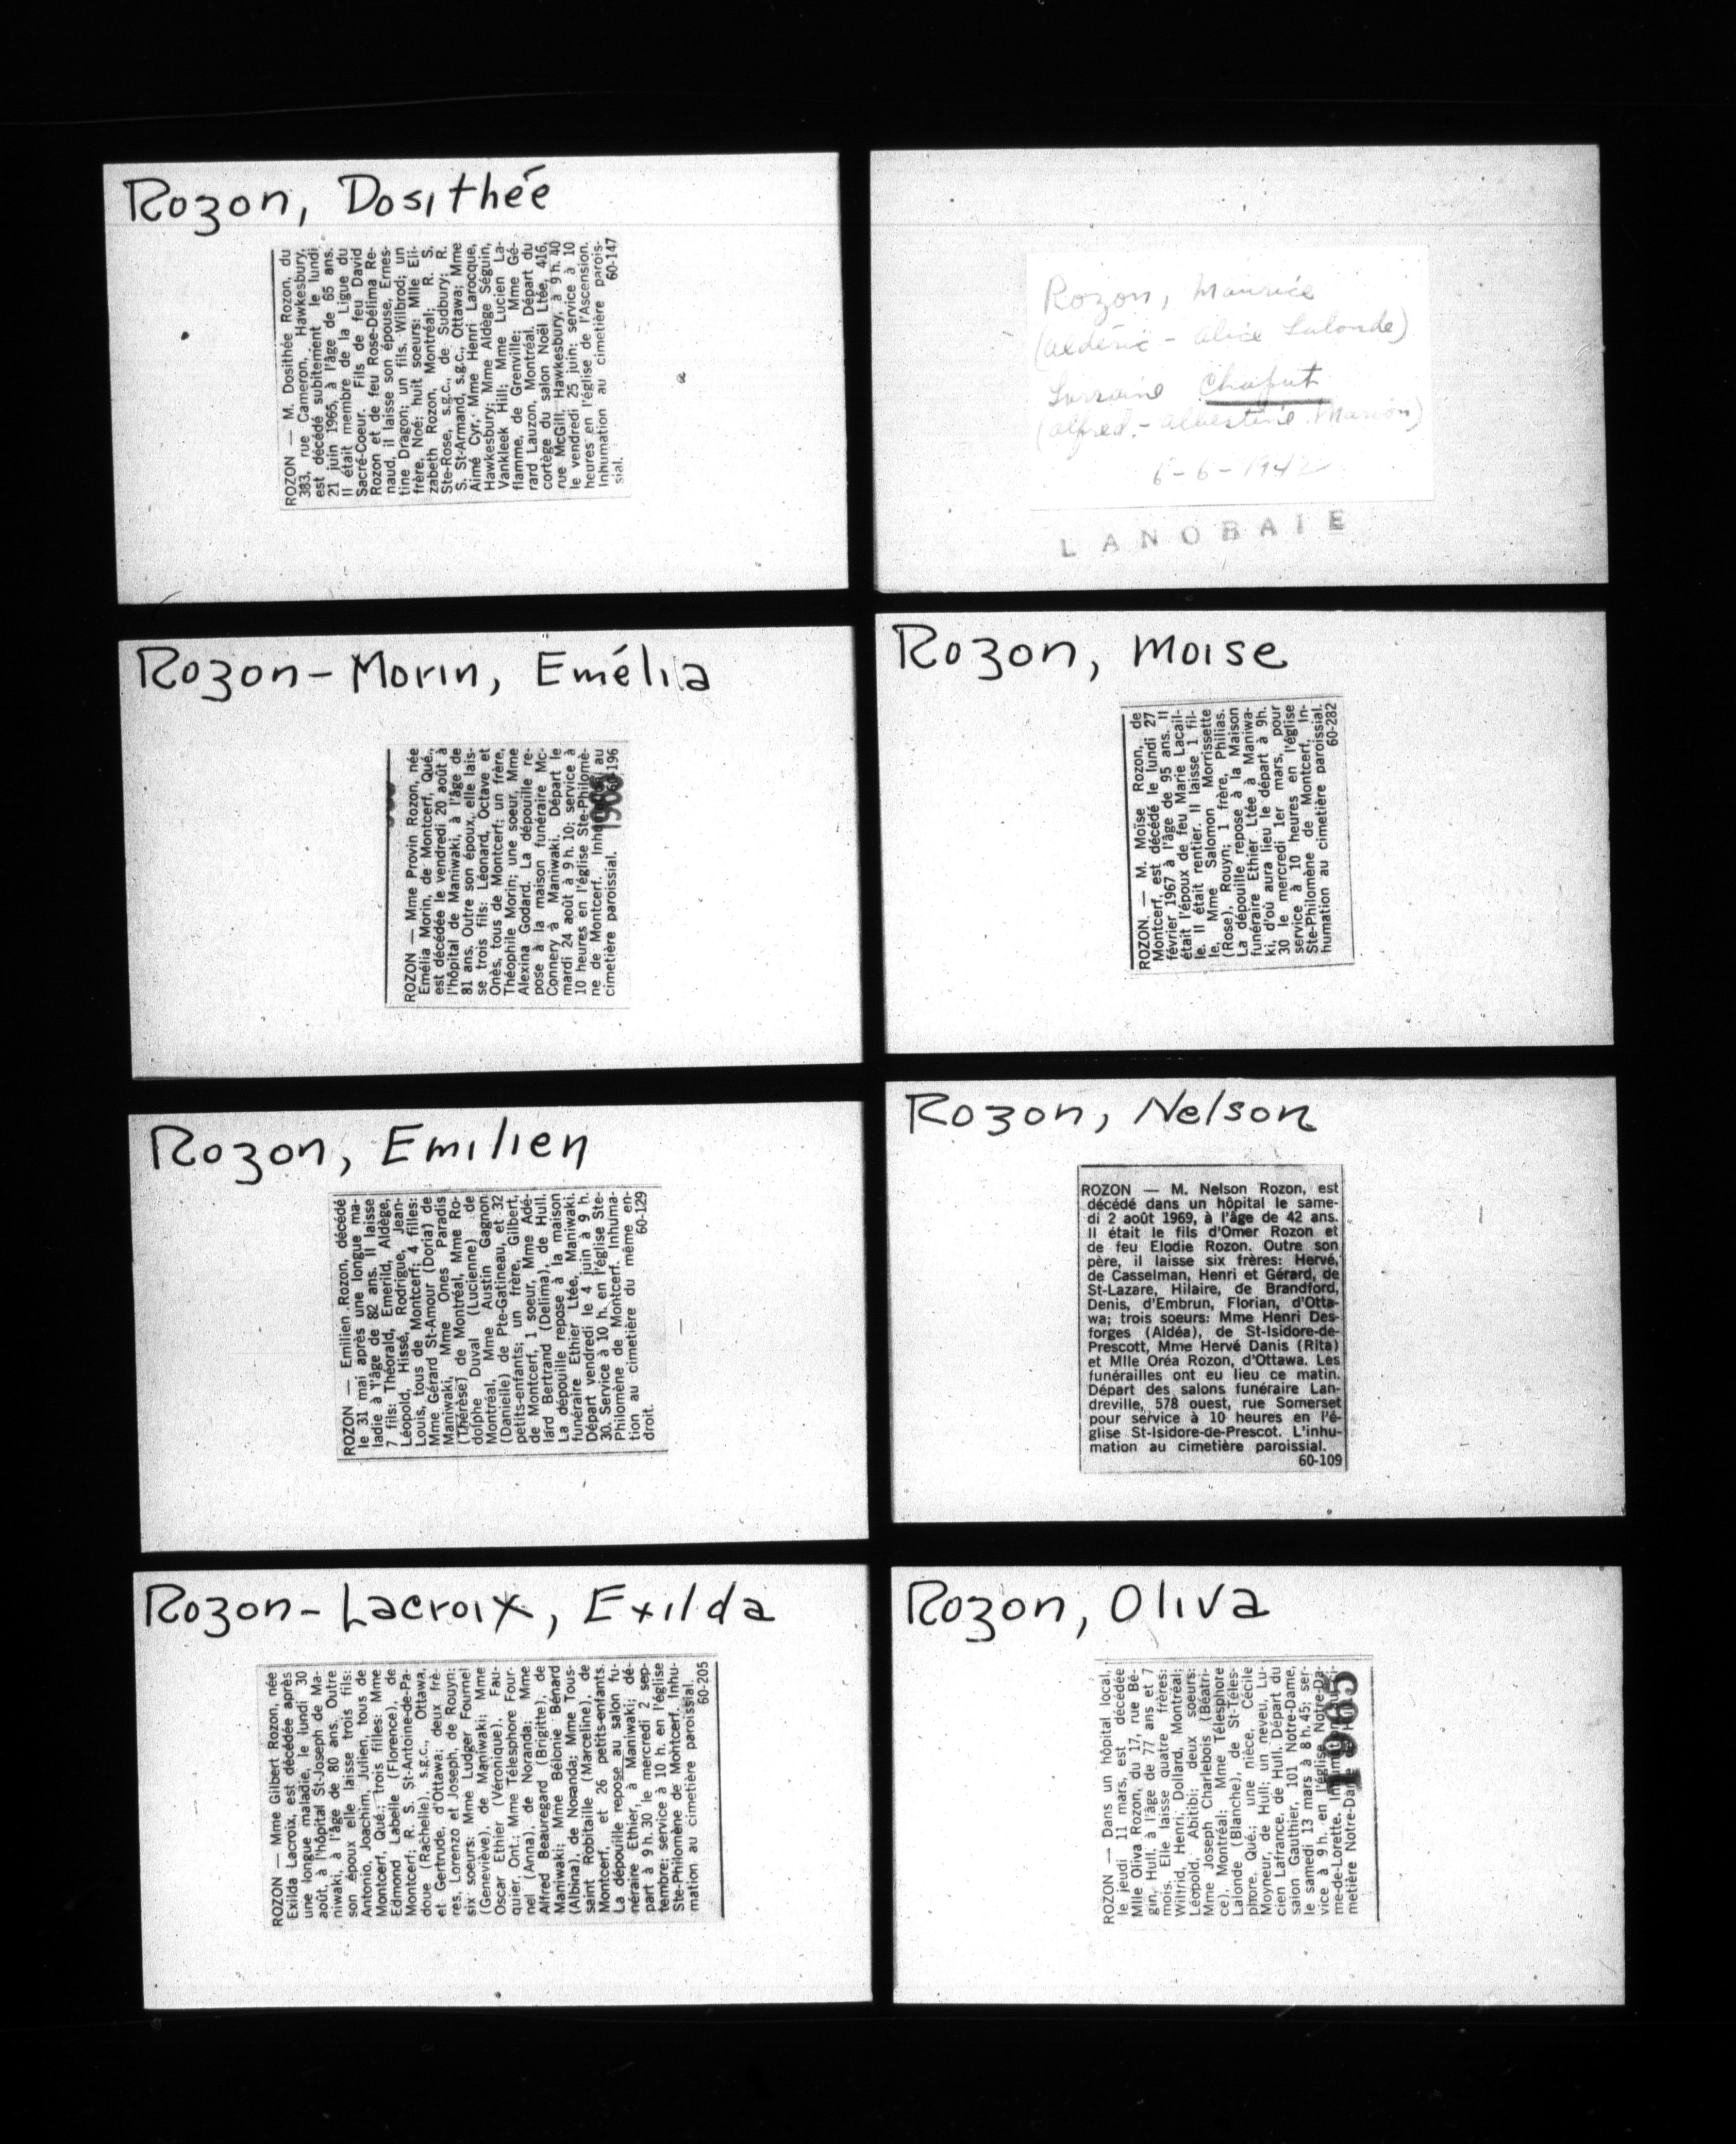 Rozon, Dosithée
ROZON — M. Dosithée Rozon, du
383, rue Cameron, Hawkesbury,
est décédé subitement le lundi
21 juin 1965, à l'âge de 65 ans.
Il était membre de la Ligue du
Sacré-Coeur. Fils de feu David
Rozon et de feu Rose-Délima Re-
naud, il laisse son épouse, Ernes-
tine Dragon; un fils, Wilbrod; un
frère, Noé; huit soeurs: Mlle Eli-
zabeth Rozon, Montréal; R. S.
Ste-Rose, s.g.c., de Sudbury; R.
S. St-Armand, s.g.c., Ottawa; Mme
Aimé Cyr, Mme Henri Larocque,
Hawkesbury; Mme Aldège Séguin,
Vankleek Hill; Mme Lucien La-
flamme, de Grenville; Mme Gé-
rard Lauzon, Montréal. Départ du
cortège du salon Noël Ltée, 416,
rue McGill, Hawkesbury, à 9 h. 40
le vendredi 25 juin; service à 10
heures en l'église de l'Ascension.
Inhumation au cimetière parois-
sial. 60-147
Rozon, Maurice
(Aldéric - Alice Lalonde)
Lorraine Chaput
(Alfred - Albestine Marion)
6-6-1942
LANOBAIE
Rozon-Morin, Emélia
ROZON — Mme Provin Rozon, née
Emélia Morin, de Montcerf, Qué.,
est décédée le vendredi 20 août à
l'hôpital de Maniwaki, à l'âge de
81 ans. Outre son époux, elle lais-
se trois fils: Léonard, Octave et
Onès, tous de Montcerf; un frère,
Théophile Morin; une soeur, Mme
Alexina Godard. La dépouille re-
pose à la maison funéraire Mc-
Connery à Maniwaki. Départ le
mardi 24 août à 9 h. 10; service à
10 heures en l'église Ste-Philomè-
ne de Montcerf. Inhumation au
cimetière paroissial. 60-196
Rozon, Moise
ROZON — M. Moïse Rozon, de
Montcerf, est décédé le lundi 27
février 1967 à l'âge de 95 ans. Il
était l'époux de feu Marie Lacail-
le. Il était rentier. Il laisse 1 fil-
le, Mme Salomon Morrissette
(Rose), Rouyn; 1 frère, Philias.
La dépouille repose à la Maison
funéraire Ethier Ltée à Maniwa-
ki, d'où aura lieu le départ à 9h.
30 le mercredi 1er mars, pour
service à 10 heures en l'église
Ste-Philomène de Montcerf. In-
humation au cimetière paroissial.
60-282
Rozon, Emilien
ROZON — Emilien Rozon, décédé
le 31 mai après une longue ma-
ladie à l'âge de 82 ans. Il laisse
7 fils: Théorald, Emerild, Aldège,
Léopold, Hissé, Rodrigue, Jean-
Louis, tous de Montcerf; 4 filles:
Mme Gérard St-Amour (Doria) de
Maniwaki, Mme Ones Paradis
(Thérèse) de Montréal, Mme Ro-
dolphe Duval (Lucienne) de
Montréal, Mme Austin Gagnon
(Danielle) de Pte-Gatineau, et 32
petits-enfants; un frère, Gilbert,
de Montcerf, 1 soeur, Mme Adé-
lard Bertrand (Delima), de Hull.
La dépouille repose à la maison
funéraire Ethier Ltée, Maniwaki.
Départ vendredi le 4 juin à 9 h.
30. Service à 10 h. en l'église Ste-
Philomène de Montcerf. Inhuma-
tion au cimetière du même en-
droit. 60-129
Rozon, Nelson
ROZON — M. Nelson Rozon, est
décédé dans un hôpital le same-
di 2 août 1969, à l'âge de 42 ans.
Il était le fils d'Omer Rozon et
de feu Elodie Rozon. Outre son
père, il laisse six frères: Hervé,
de Casselman, Henri et Gérard, de
St-Lazare, Hilaire, de Brandford,
Denis, d'Embrun, Florian, d'Otta-
wa; trois soeurs: Mme Henri Des-
forges (Aldéa), de St-Isidore-de-
Prescott, Mme Hervé Danis (Rita)
et Mlle Oréa Rozon, d'Ottawa. Les
funérailles ont eu lieu ce matin.
Départ des salons funéraire Lan-
dreville, 578 ouest, rue Somerset
pour service à 10 heures en l'é-
glise St-Isidore-de-Prescot. L'inhu-
mation au cimetière paroissial.
60-109
Rozon-Lacroix, Exilda
ROZON — Mme Gilbert Rozon, née
Exilda Lacroix, est décédée après
une longue maladie, le lundi 30
août, à l'hôpital St-Joseph de Ma-
niwaki, à l'âge de 80 ans. Outre
son époux elle laisse trois fils:
Antonio, Joachim, Julien, tous de
Montcerf, Qué.; trois filles: Mme
Edmond Labelle (Florence), de
Montcerf; R. S. St-Antoine-de-Pa-
doue (Rachelle), s.g.c., Ottawa,
et Gertrude, d'Ottawa; deux frè-
res, Lorenzo et Joseph, de Rouyn;
six soeurs: Mme Ludger Fournel
(Geneviève), de Maniwaki; Mme
Oscar Ethier (Véronique), Fau-
quier, Ont.; Mme Télesphore Four-
nel (Anna), de Noranda; Mme
Alfred Beauregard (Brigitte), de
Maniwaki; Mme Bélonie Bénard
(Albina), de Noranda; Mme Tous-
saint Robitaille (Marceline), de
Montcerf, et 26 petits-enfants.
La dépouille repose au salon fu-
néraire Ethier, à Maniwaki; dé-
part à 9 h. 30 le mercredi 2 sep-
tembre; service à 10 h. en l'église
Ste-Philomène de Montcerf. Inhu-
mation au cimetière paroissial.
60-205
Rozon, Oliva
ROZON — Dans un hôpital local,
le jeudi 11 mars, est décédée
Mlle Oliva Rozon, du 17, rue Bé-
gin, Hull, à l'âge de 77 ans et 7
mois. Elle laisse quatre frères:
Wilfrid, Henri, Dollard, Montréal;
Léopold, Abitibi; deux soeurs:
Mme Joseph Charlebois (Béatri-
ce), Montréal; Mme Télesphore
Lalonde (Blanche), de St-Téles-
phore, Qué.; une nièce, Cécile
Moyneur, de Hull; un neveu, Lu-
cien Lafrance, de Hull. Départ du
salon Gauthier, 101 Notre-Dame,
le samedi 13 mars à 8 h. 45; ser-
vice à 9 h. en l'église Notre-Da-
me-de-Lorette. Inhumation au ci-
metière Notre-Dame
1965